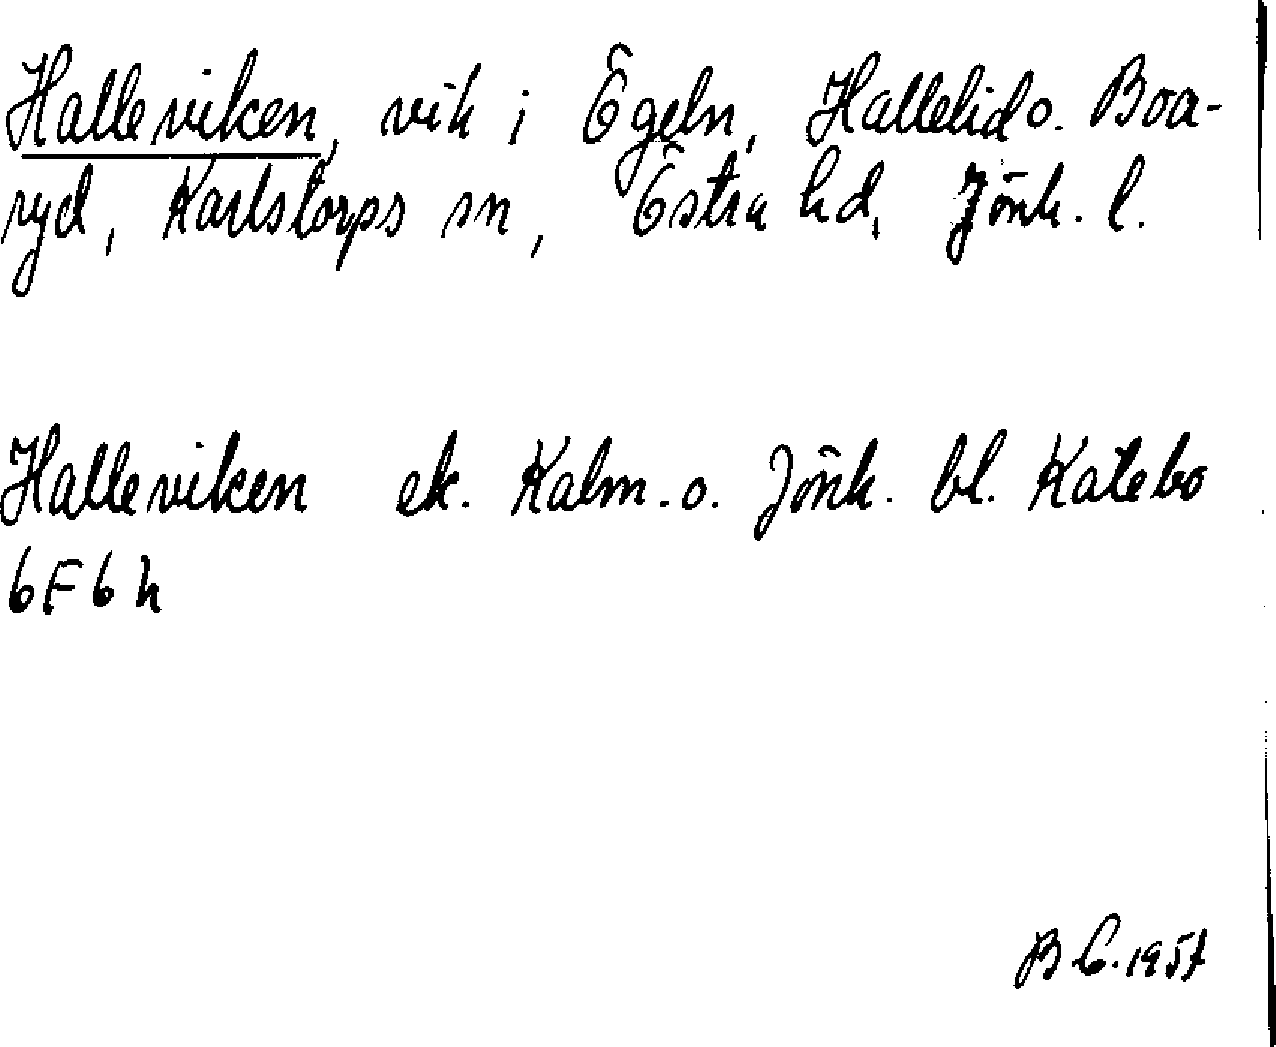 Halleviken, vik i Ögeln, Hallelid o. Boa-
ryd, Karlstorps sn, Östra hd, Jönk. l.
Halleviken ek. Kalm. o. Jönk. bl. Katebo
6F6h
B C. 1957